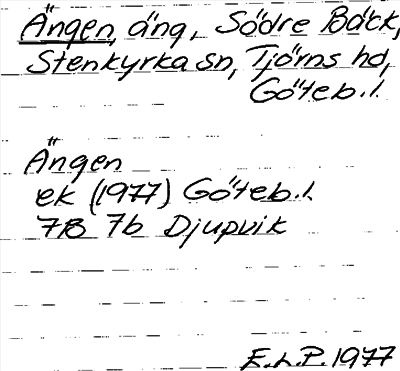 Ängen, äng, Södre Bäck,
Stenkyrka sn, Tjörns hd,
Göteb. l.
Ängen
ek (1977) Göteb. l.
7B 7b Djupvik
E.L.P. 1977